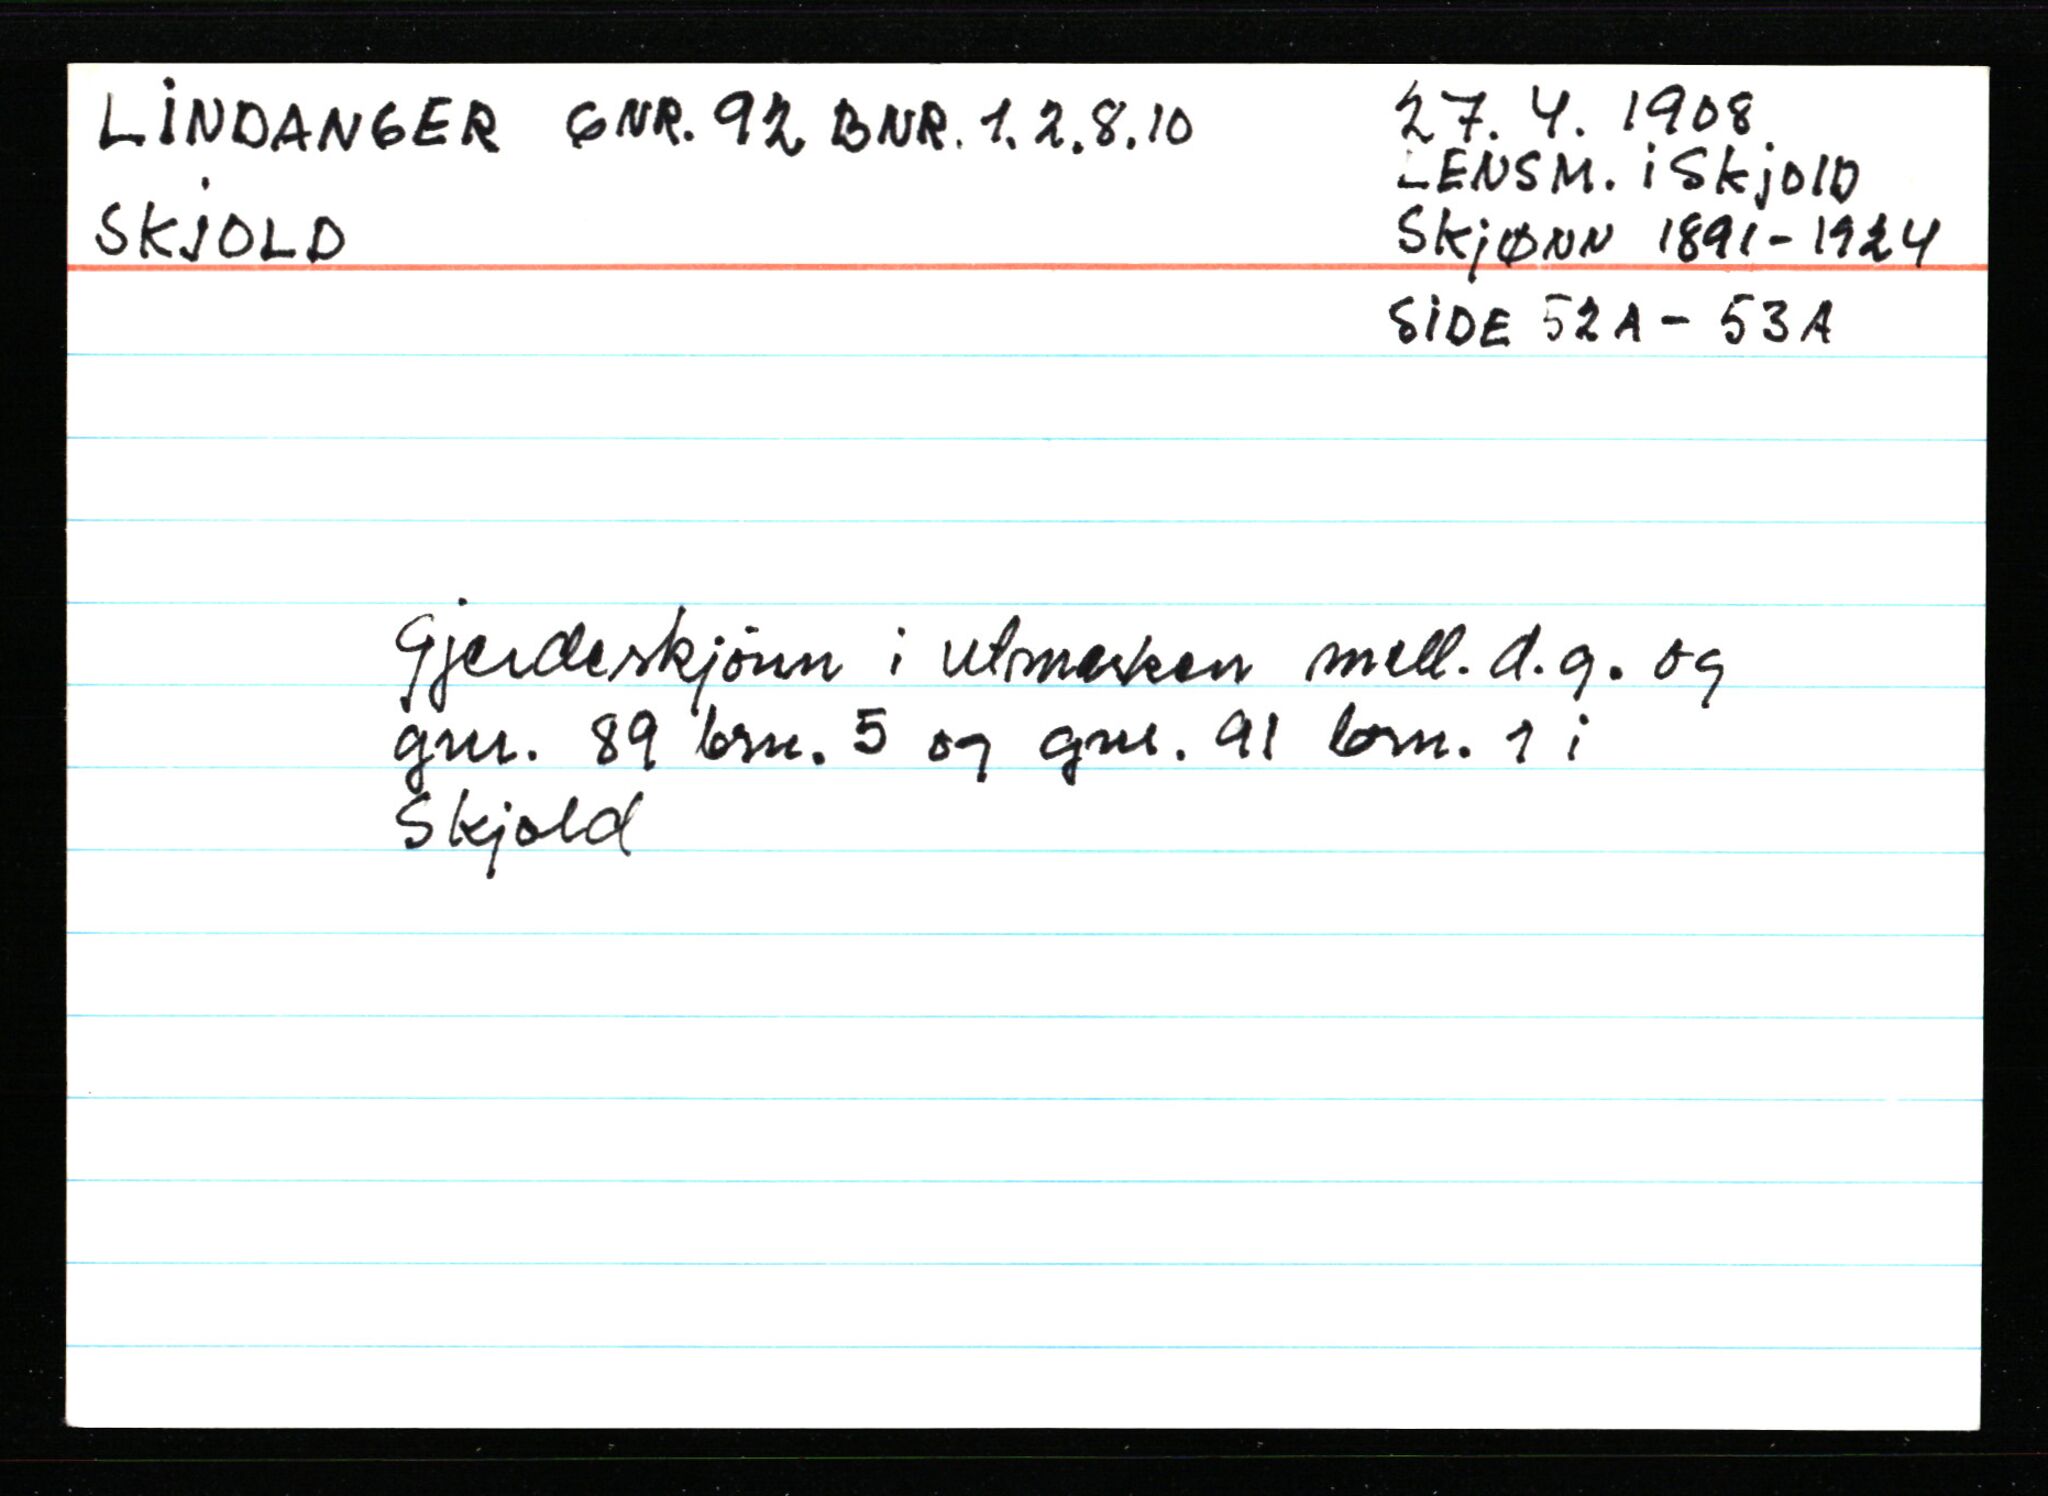 LINDANGER GNR. 92 BNR. 1.2.8.10
SKJOLD
27. 4. 1908
LENSM. i Skjold
Skjønn 1891-1924
SIDE 52A - 53A
Gjerdeskjönn i utmarken mell. d.g. og
gnr. 89 bnr. 5 og gnr. 91 bnr. 1 i
Skjold